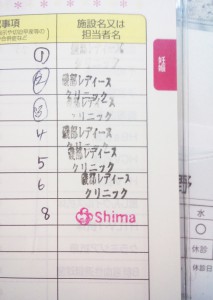 事項
施設名又は
担当者名
①
②
磯部レディース
クリニック
③
磯部レディース
クリニック
4
磯部レディース
クリニック
5
磯部レディース
クリニック
6
磯部レディース
クリニック
8
Shima
妊娠
野
水
○
休診
休診日